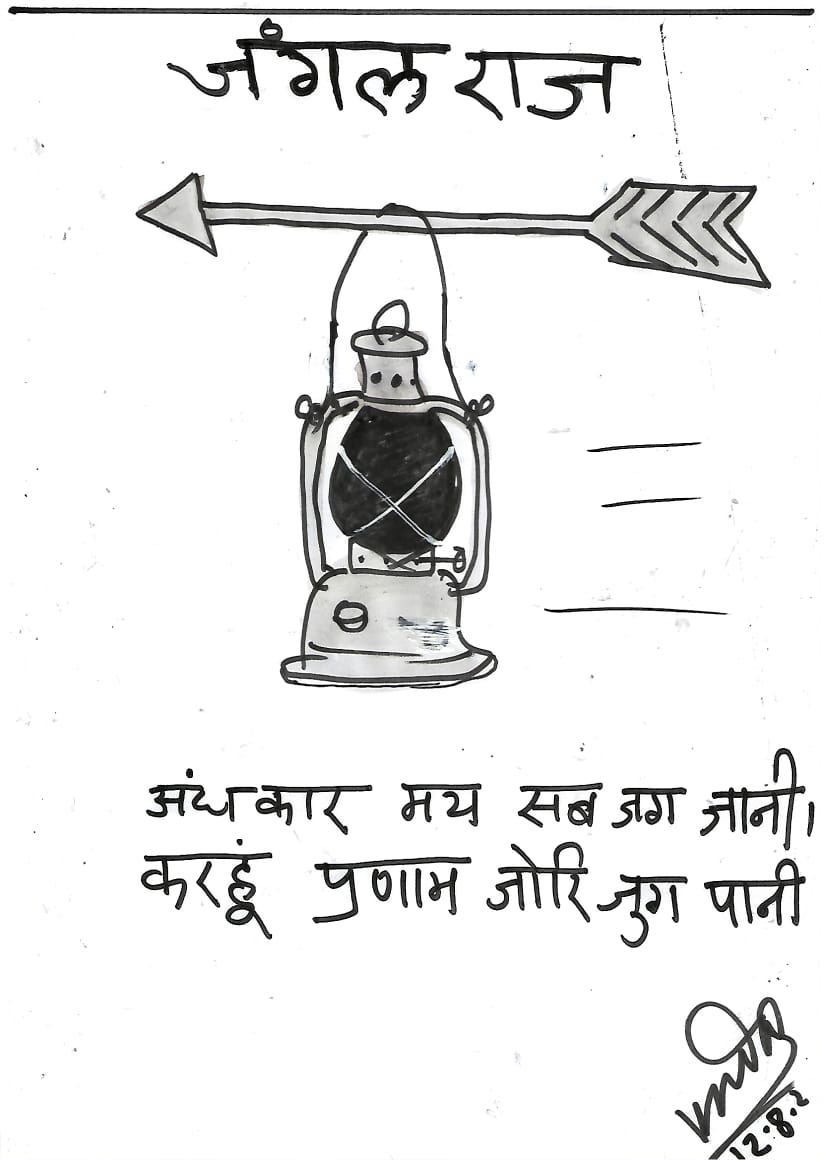 जंगल राज
अंधकार मय सब जग जानी।
करहूं प्रणाम जोरि जुग पानी
12.8.2